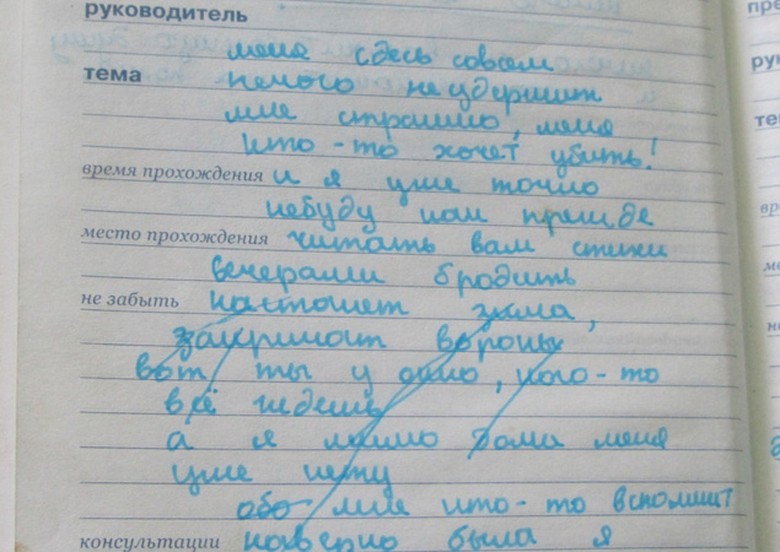 руководитель
меня сдесь совсем
тема
немого не удержит
мне страшно, меня
што-то хочет убить!
время прохождения и я уже точно
небуду как прежде
место прохождения читать вам стихи
вечерами бродить
не забыть настонет зима,
закричат вороны
вот ты у окно, кого-то
всё ждешь
а я мимо дома меня
уже нету
обо мне што-то вспомнит
консультации наверно была я